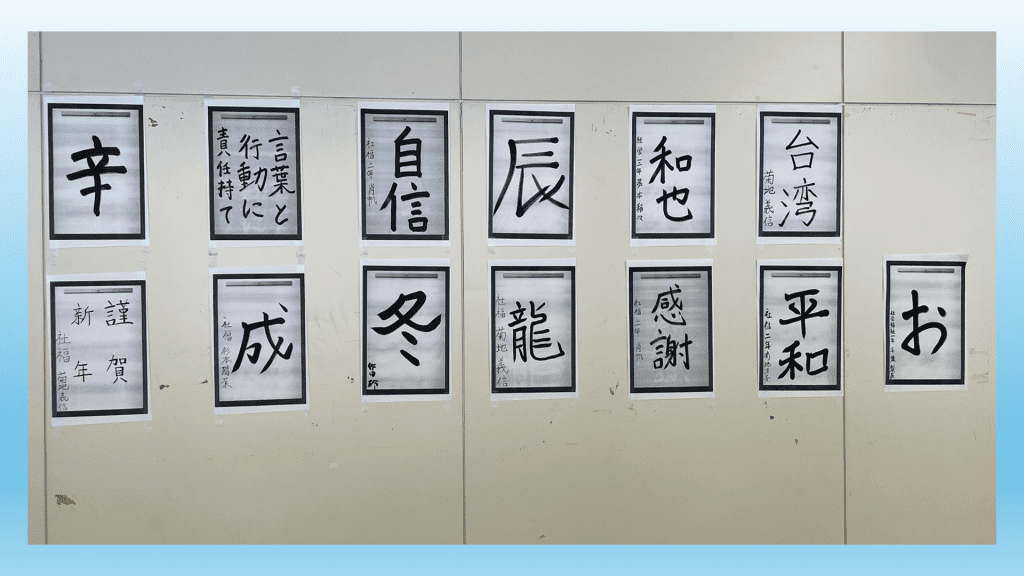 辛
言葉と
行動に
責任持て
自信
社福二年
辰
和也
台湾
菊地義信
謹賀
新年
社福 菊地義信
成
社福
冬
龍
社福 菊地義信
感謝
社福二年
平和
お